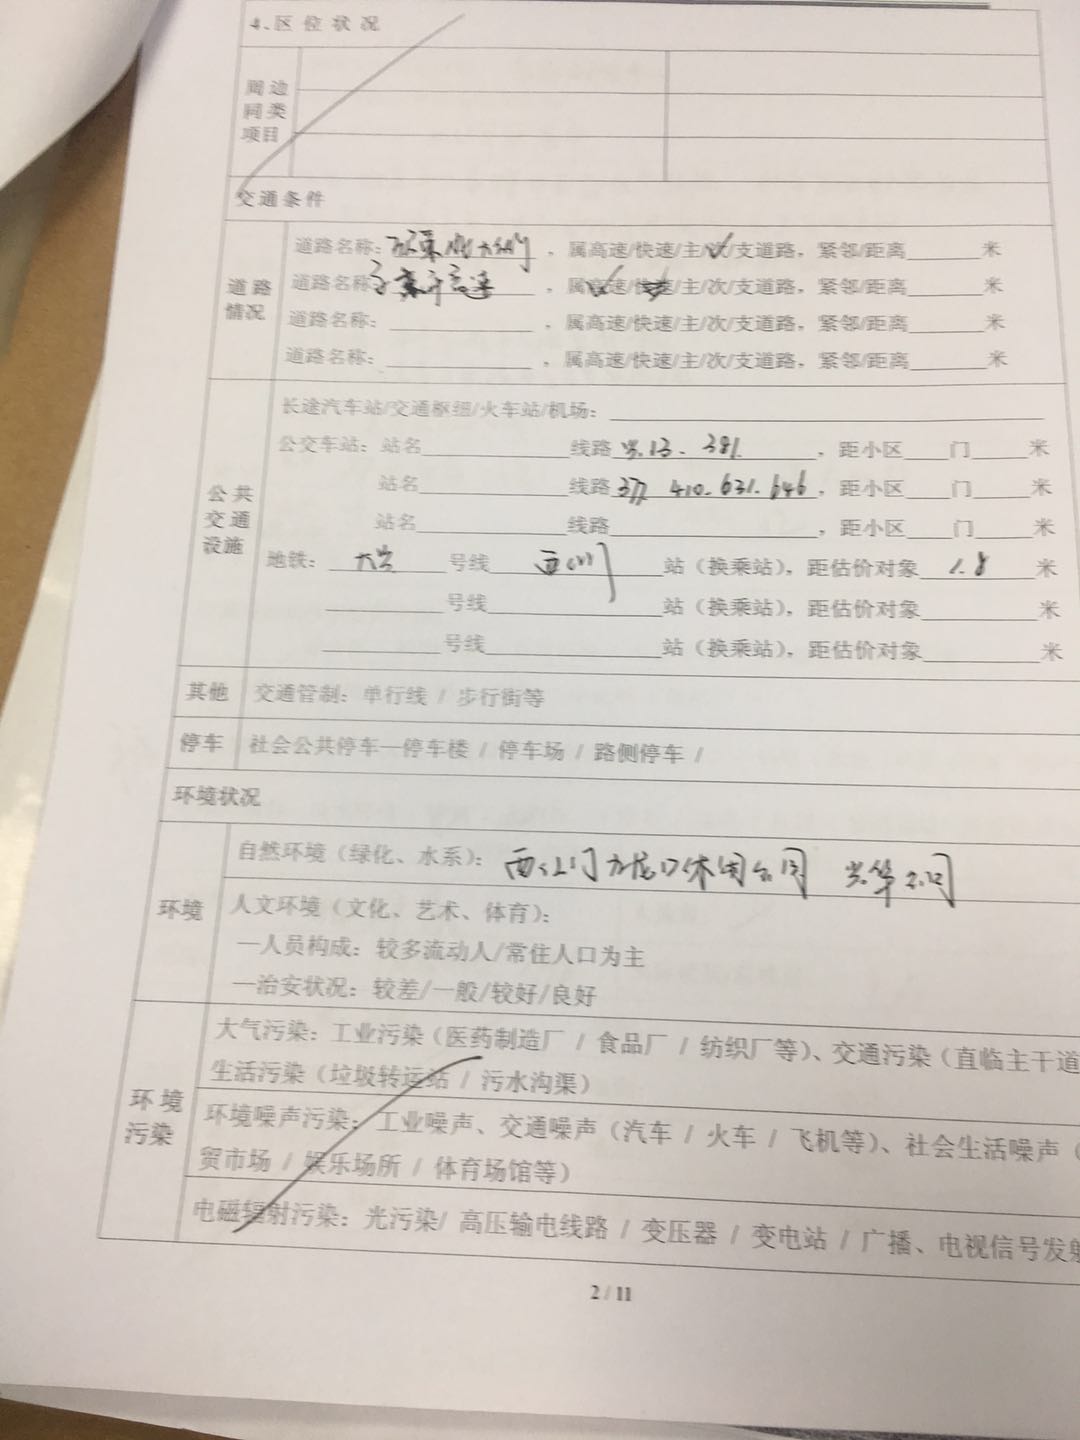 4、区位状况
周边
同类
项目
交通条件
道路
情况
道路名称: ，属高速/快速/主/次/支道路，紧邻/距离 米
道路名称 京开高速 ，属高速/快速/主/次/支道路，紧邻/距离 米
道路名称: ，属高速/快速/主/次/支道路，紧邻/距离 米
道路名称: ，属高速/快速/主/次/支道路，紧邻/距离 米
公共
交通
设施
长途汽车站/交通枢纽/火车站/机场:
公交车站: 站名 线路 兴13. 381. ，距小区 门 米
站名 线路 377 410. 631. 646 ，距小区 门 米
站名 线路 ，距小区 门 米
地铁: 大兴 号线 西红门 站（换乘站），距估价对象 1.8 米
号线 站（换乘站），距估价对象 米
号线 站（换乘站），距估价对象 米
其他 交通管制: 单行线 / 步行街等
停车 社会公共停车—停车楼 / 停车场 / 路侧停车 /
环境状况
环境
自然环境（绿化、水系）: 西红门 休闲公园 兴华公园
人文环境（文化、艺术、体育）:
—人员构成: 较多流动人/常住人口为主
—治安状况: 较差/一般/较好/良好
环境
污染
大气污染: 工业污染（医药制造厂 / 食品厂 / 纺织厂等）、交通污染（直临主干道
生活污染（垃圾转运站 / 污水沟渠）
环境噪声污染: 工业噪声、交通噪声（汽车 / 火车 / 飞机等）、社会生活噪声（
贸市场 / 娱乐场所 / 体育场馆等）
电磁辐射污染: 光污染/ 高压输电线路 / 变压器 / 变电站 / 广播、电视信号发射
2 / 11